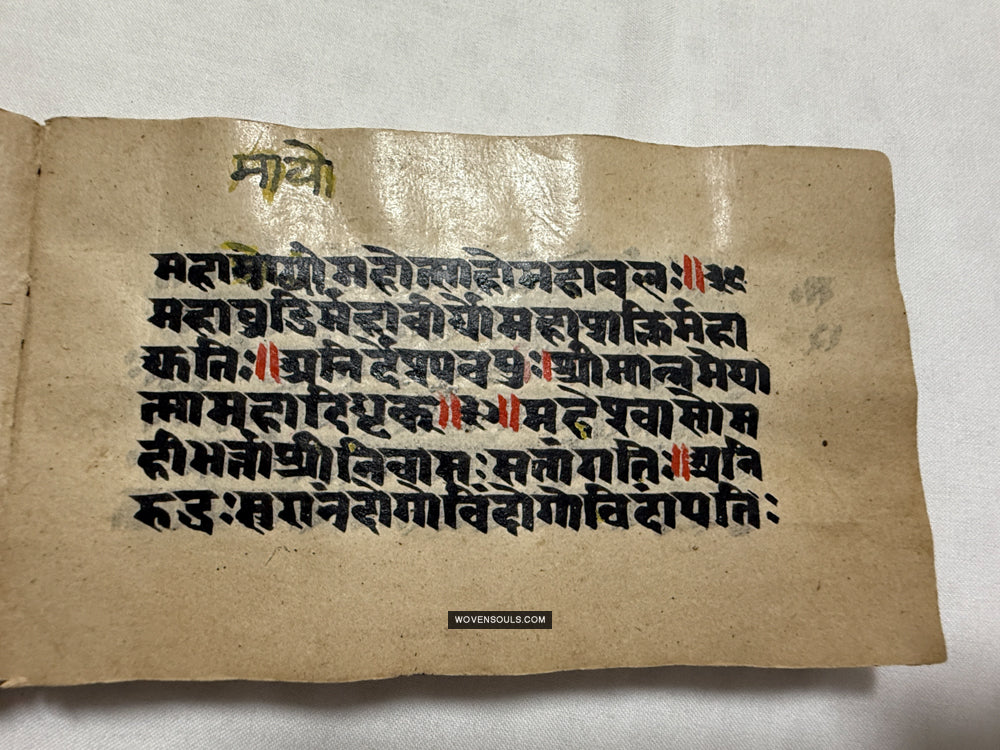 मायो
महामायो महोत्साहो महाबलः॥३१
महाबुद्धिर्महावीर्यो महाशक्तिर्महा
द्युतिः॥अनिर्देश्यवपुः॥श्रीमानमेया
त्मा महाद्रिधृक्॥३२॥महेश्वासो म
हीभर्त्ता श्रीनिवासः सतां गतिः॥अनि
रुद्धः सुरानंदो गोविंदो गोविदां पतिः
WOVENSOULS.COM